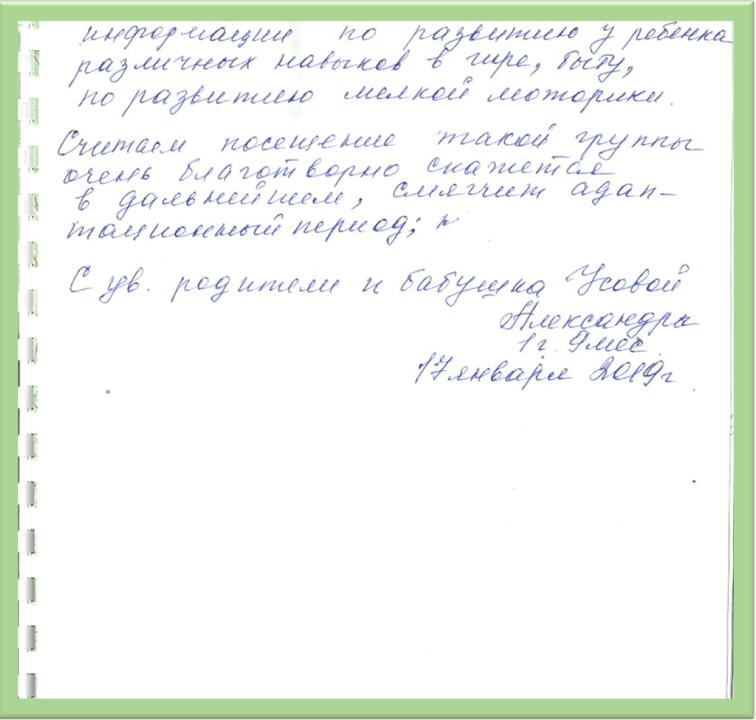 информации по развитию у ребенка
различных навыков в игре, быту,
по развитию мелкой моторики.
Считаем посещение такой группы
очень благотворно скажется
в дальнейшем, смягчит адап-
тационный период;
С ув. родители и бабушка Усовой
Александры
1 г. 9 мес.
17 января 2019г